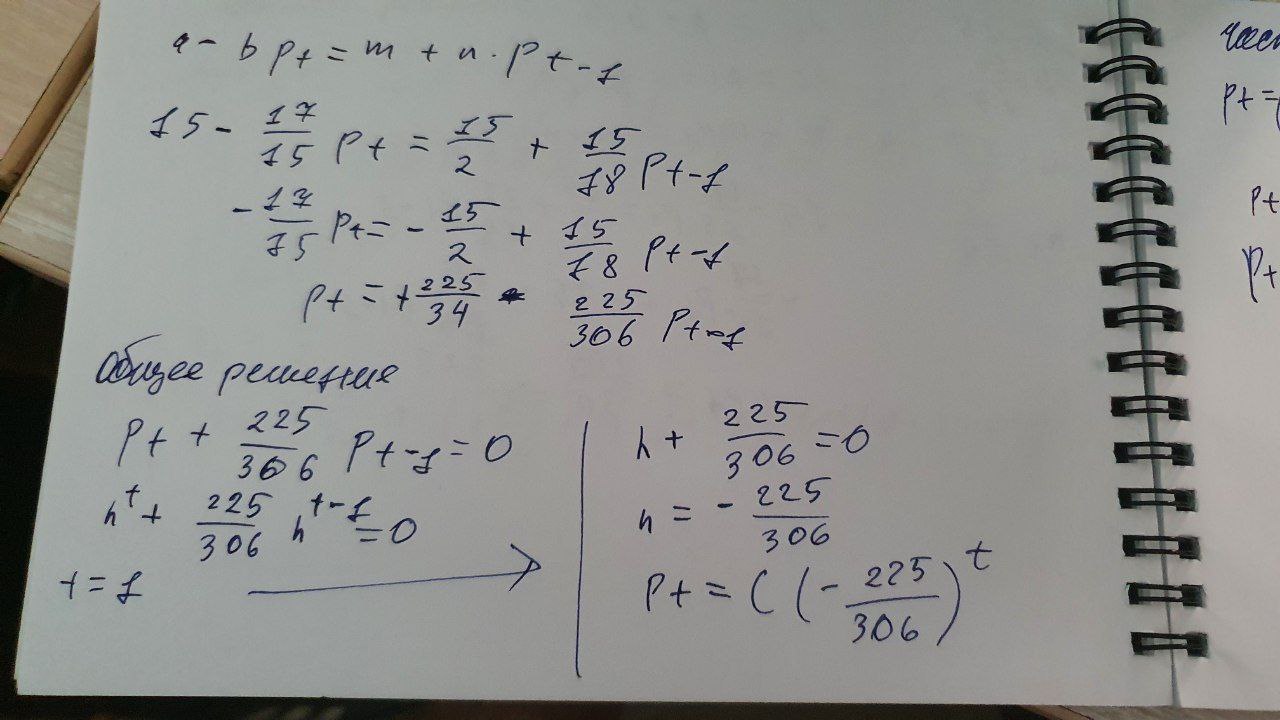 a - b Pt = m + n · Pt-1
15 - 17/15 Pt = 15/2 + 15/18 Pt-1
- 17/15 Pt = - 15/2 + 15/18 Pt-1
Pt = + 225/34 - 225/306 Pt-1
Общее решения
Pt + 225/306 Pt-1 = 0
h^t + 225/306 h^t-1 = 0
t = 1
h + 225/306 = 0
h = - 225/306
Pt = C (- 225/306)^t
част
Pt =
Pt
Pt